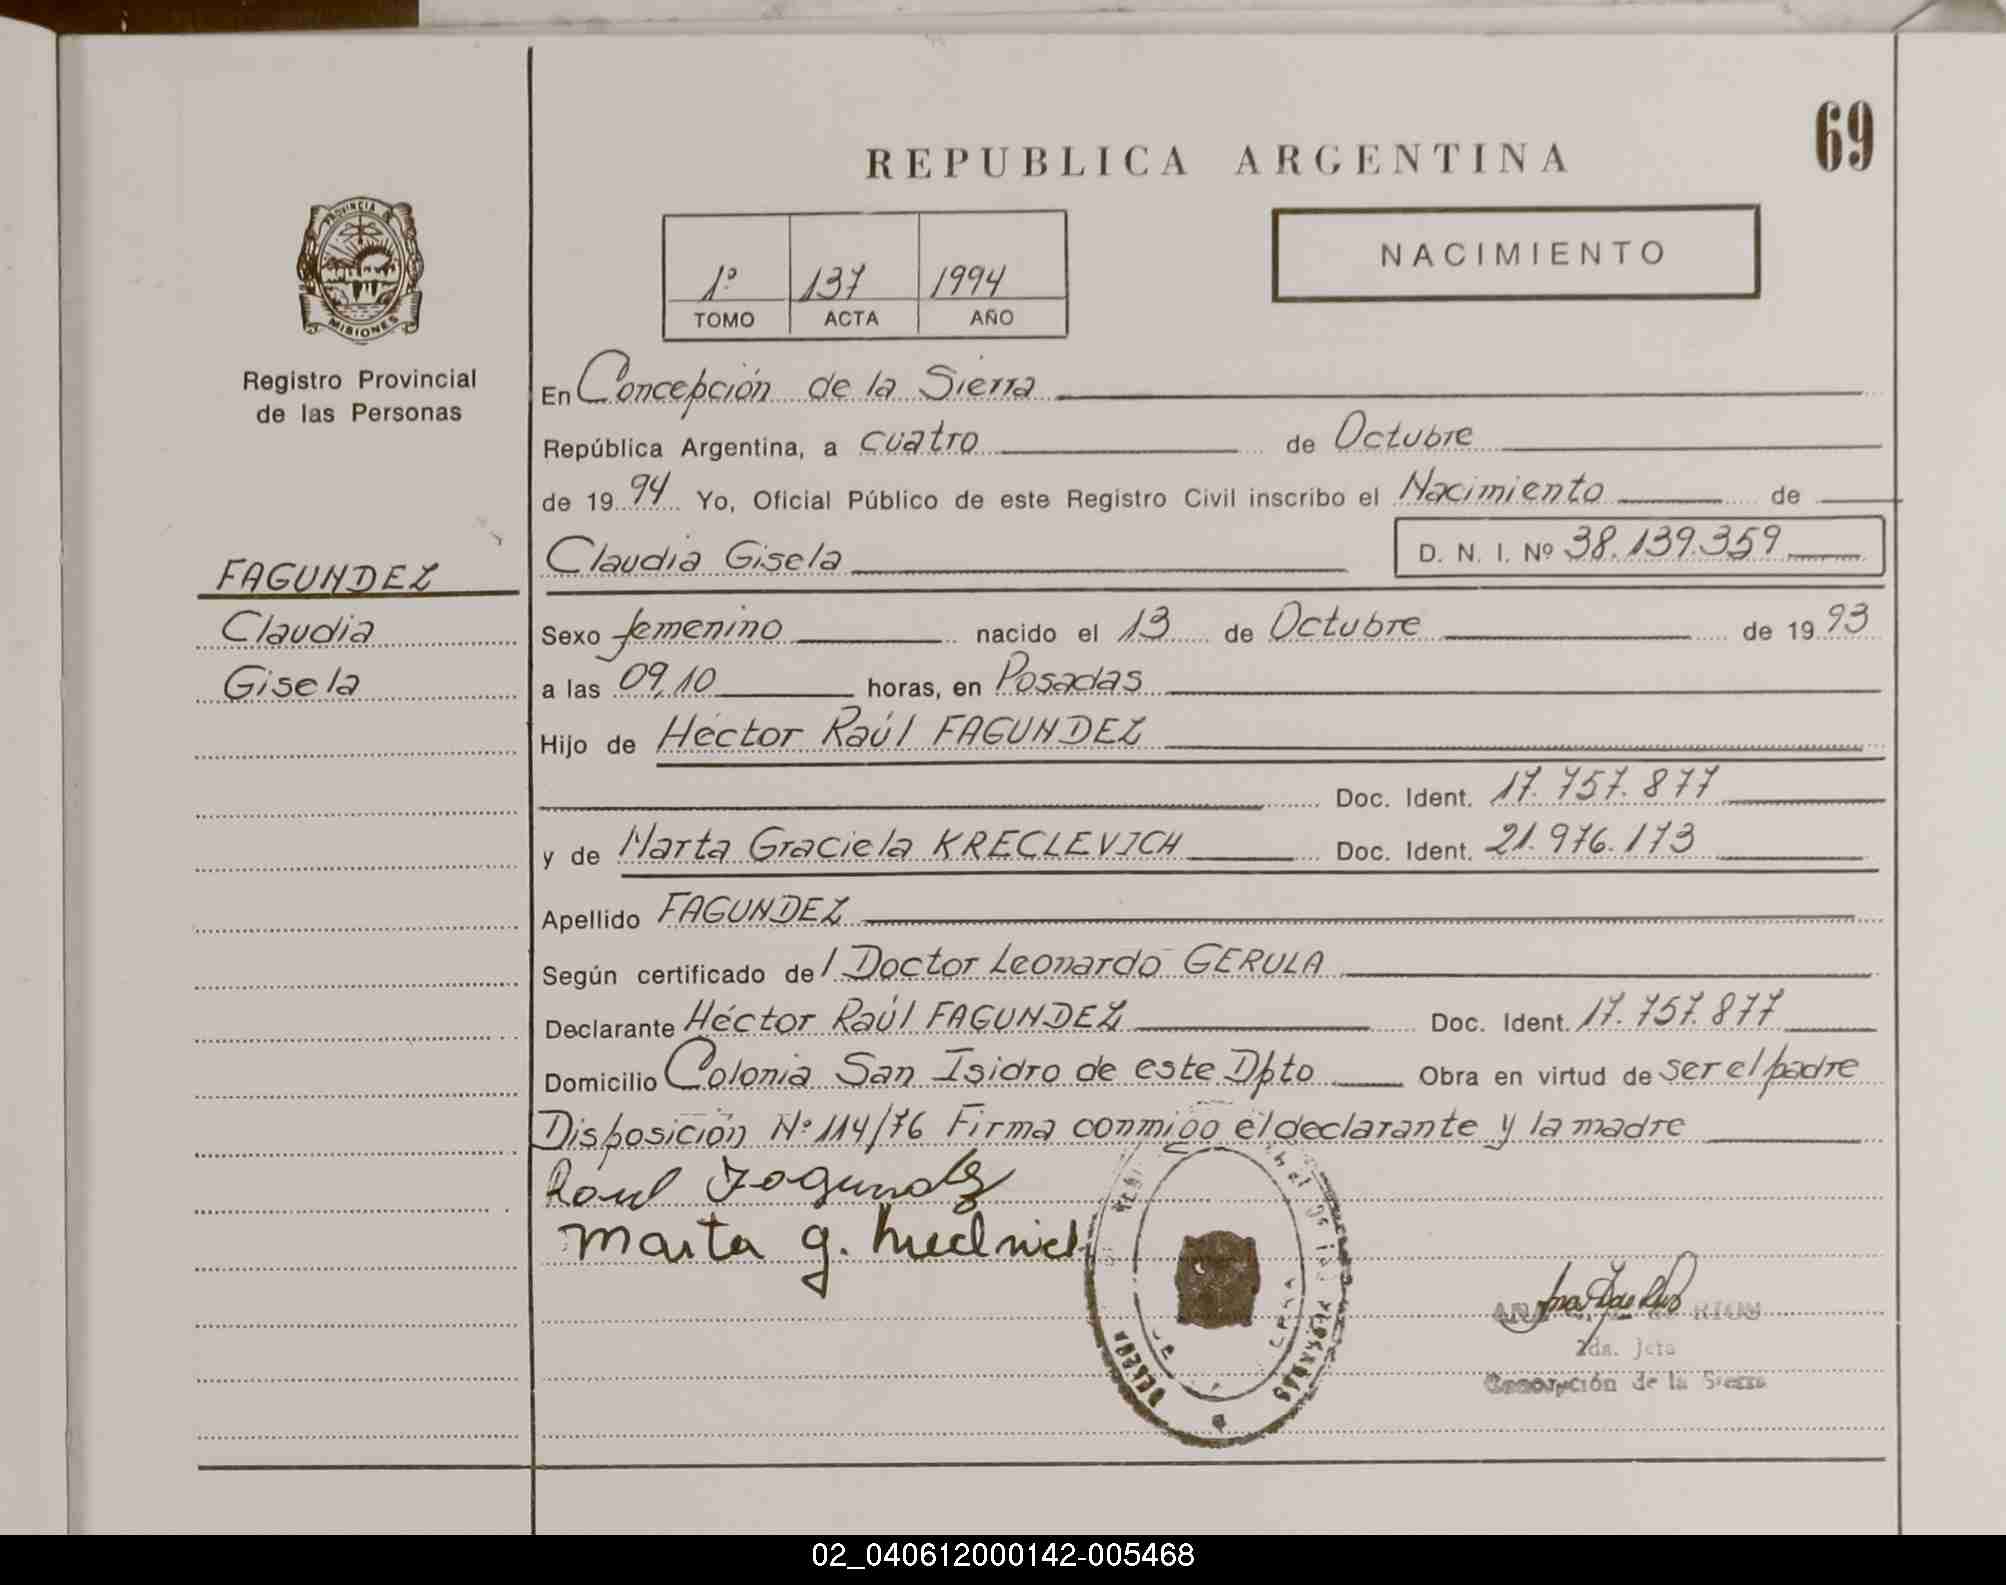 69
REPUBLICA ARGENTINA
NACIMIENTO
1º 137 1994
TOMO ACTA AÑO
PROVINCIA DE
MISIONES
Registro Provincial
de las Personas
En Concepción de la Sierra
República Argentina, a cuatro de Octubre
de 19 94 Yo, Oficial Público de este Registro Civil inscribo el Nacimiento de
Claudia Gisela D. N. I. Nº 38.139.359
FAGUNDEZ
Claudia
Gisela
Sexo femenino nacido el 13 de Octubre de 19 93
a las 09,10 horas, en Posadas
Hijo de Héctor Raúl FAGUNDEZ
Doc. Ident. 17.757.877
y de Marta Graciela KRECLEVICH Doc. Ident. 21.976.173
Apellido FAGUNDEZ
Según certificado del Doctor Leonardo GERULA
Declarante Héctor Raúl FAGUNDEZ Doc. Ident. 17.757.877
Domicilio Colonia San Isidro de este Dpto Obra en virtud de ser el padre
Disposición Nº 114/76 Firma conmigo el declarante y la madre
Raul Fagundez
Marta g.
2da. Jefa
Concepción de la Sierra
02_040612000142-005468